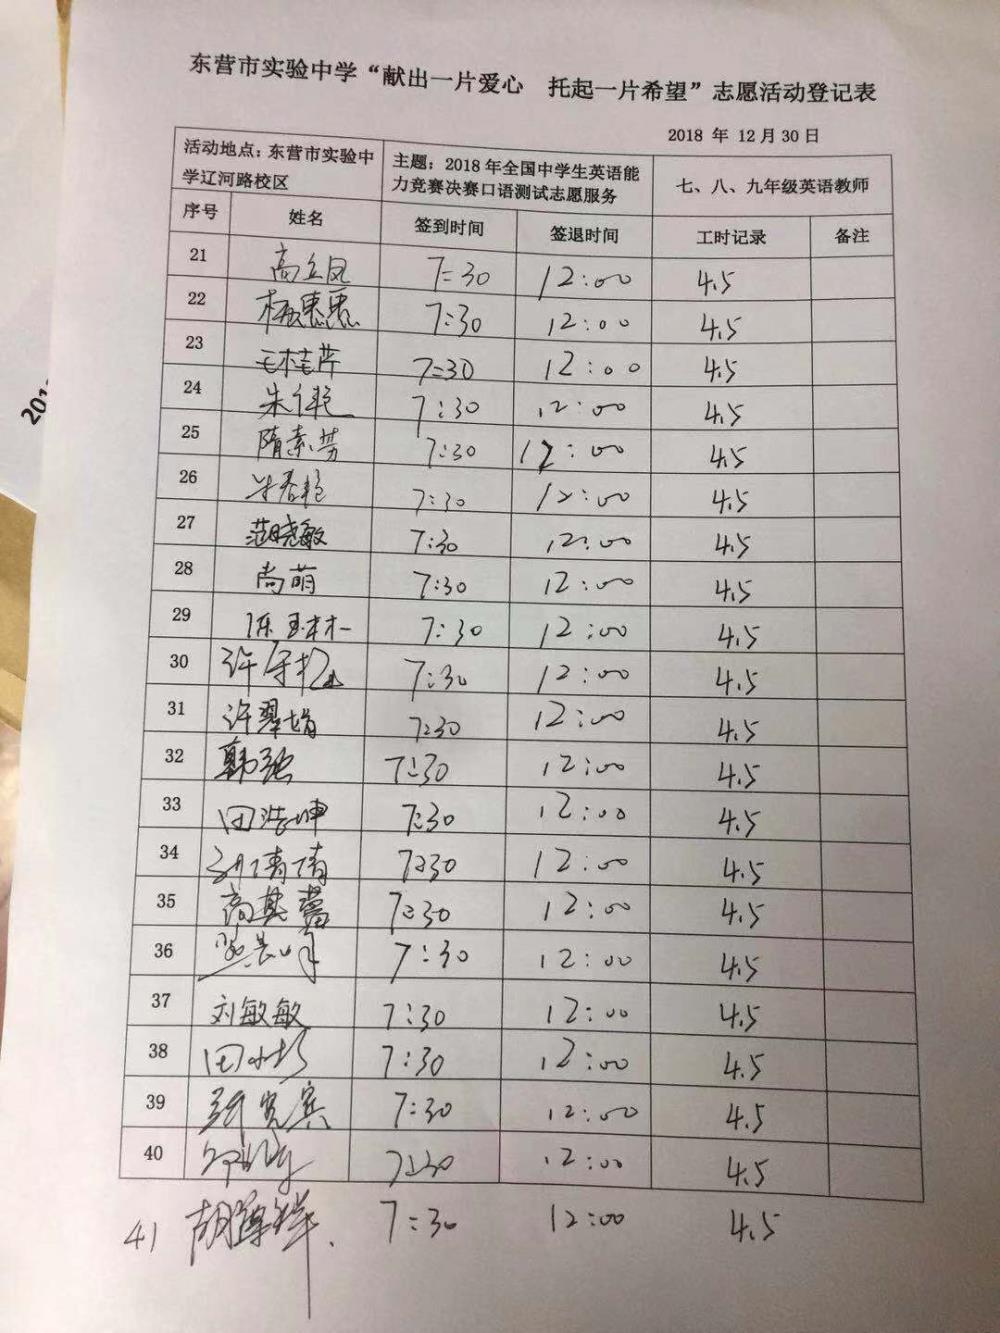 东营市实验中学“献出一片爱心 托起一片希望”志愿活动登记表
2018 年 12 月 30 日
活动地点：东营市实验中学辽河路校区 主题：2018 年全国中学生英语能力竞赛决赛口语测试志愿服务 七、八、九年级英语教师
序号 姓名 签到时间 签退时间 工时记录 备注
21 高立凤 7:30 12:00 4.5
22 杨惠惠 7:30 12:00 4.5
23 王桂芹 7:30 12:00 4.5
24 朱 艳 7:30 12:00 4.5
25 隋素芳 7:30 12:00 4.5
26 春艳 7:30 12:00 4.5
27 范晓敏 7:30 12:00 4.5
28 尚萌 7:30 12:00 4.5
29 陈玉林 7:30 12:00 4.5
30 许 7:30 12:00 4.5
31 许翠娟 7:30 12:00 4.5
32 韩强 7:30 12:00 4.5
33 田浩坤 7:30 12:00 4.5
34 刘倩倩 7:30 12:00 4.5
35 高其蕾 7:30 12:00 4.5
36 7:30 12:00 4.5
37 刘敏敏 7:30 12:00 4.5
38 田 7:30 12:00 4.5
39 宽宾 7:30 12:00 4.5
40 7:30 12:00 4.5
41 胡 7:30 12:00 4.5
201